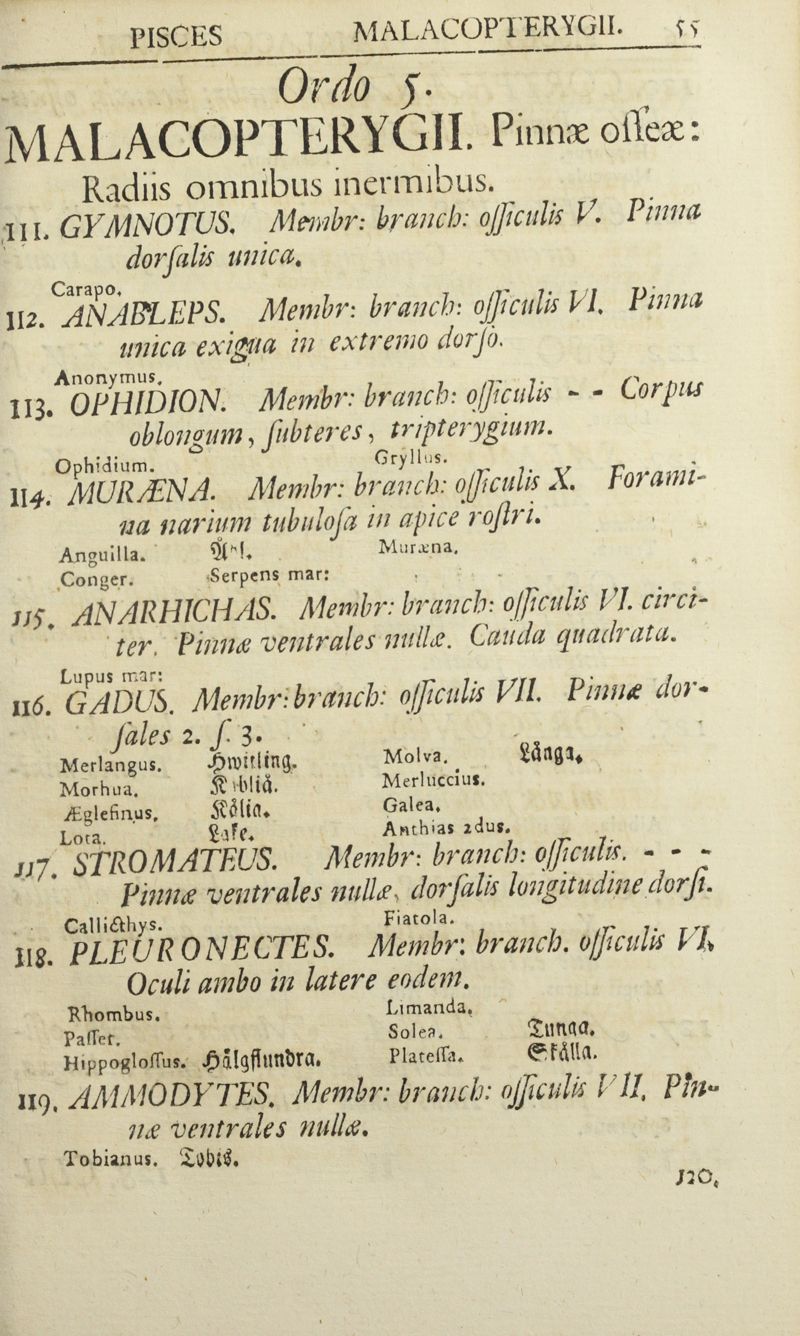 PISCES MALACOPTERYGII. 55
Ordo 5.
MALACOPTERYGII. Pinnæ oſſeæ:
Radiis omnibus inermibus.
111. GYMNOTUS. Membr: branch: oſſiculis V. Pinna
dorſalis unica.
Carapo.
112. ANABLEPS. Membr: branch: oſſiculis VI. Pinna
unica exigua in extremo dorſo.
Anonymus.
113. OPHIDION. Membr: branch: oſſiculis - - Corpus
oblongum, ſubteres, tripterygium.
Ophidium. Gryllus.
114. MURÆNA. Membr: branch: oſſiculis X. Forami-
na narium tubuloſa in apice roſtri.
Anguilla. Ål. Muræna.
Conger. Serpens mar:
115. ANARHICHAS. Membr: branch: oſſiculis VI. circi-
ter. Pinnæ ventrales nullæ. Cauda quadrata.
Lupus mar:
116. GADUS. Membr: branch: oſſiculis VII. Pinnæ dor-
ſales 2. ſ. 3.
Merlangus. Hwitling. Molva. Långa.
Morhua. Merluccius.
Æglefinus, Kålia. Galea.
Lota. Lake. Anthias 2dus.
117. STROMATEUS. Membr: branch: oſſiculis. - - -
Pinnæ ventrales nullæ, dorſalis longitudine dorſi.
Callicthys. Fiatola.
118. PLEURONECTES. Membr: branch. oſſiculis VI.
Oculi ambo in latere eodem.
Rhombus. Limanda.
Paſſer. Solea. Tunga.
Hippogloſſus. Hålgflundra. Plateſſa. Skålla.
119. AMMODYTES. Membr: branch: oſſiculis VII. Pin-
næ ventrales nullæ.
Tobianus. Tobis.
120.